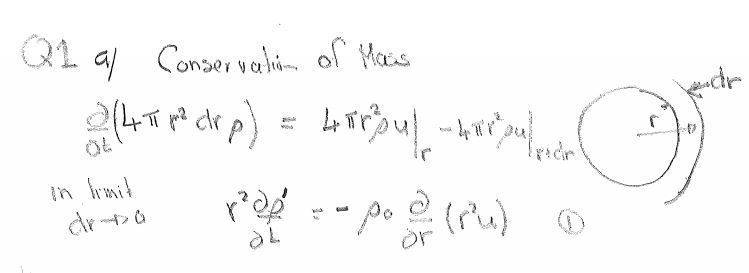 Q1 a/ Conservation of Mass
∂/∂t (4πr² dr ρ) = 4πr²ρu|r − 4πr²ρu|r+dr
dr
r
in limit
dr→0
r² ∂ρ'/∂t = − ρ₀ ∂/∂r (r²u) ①